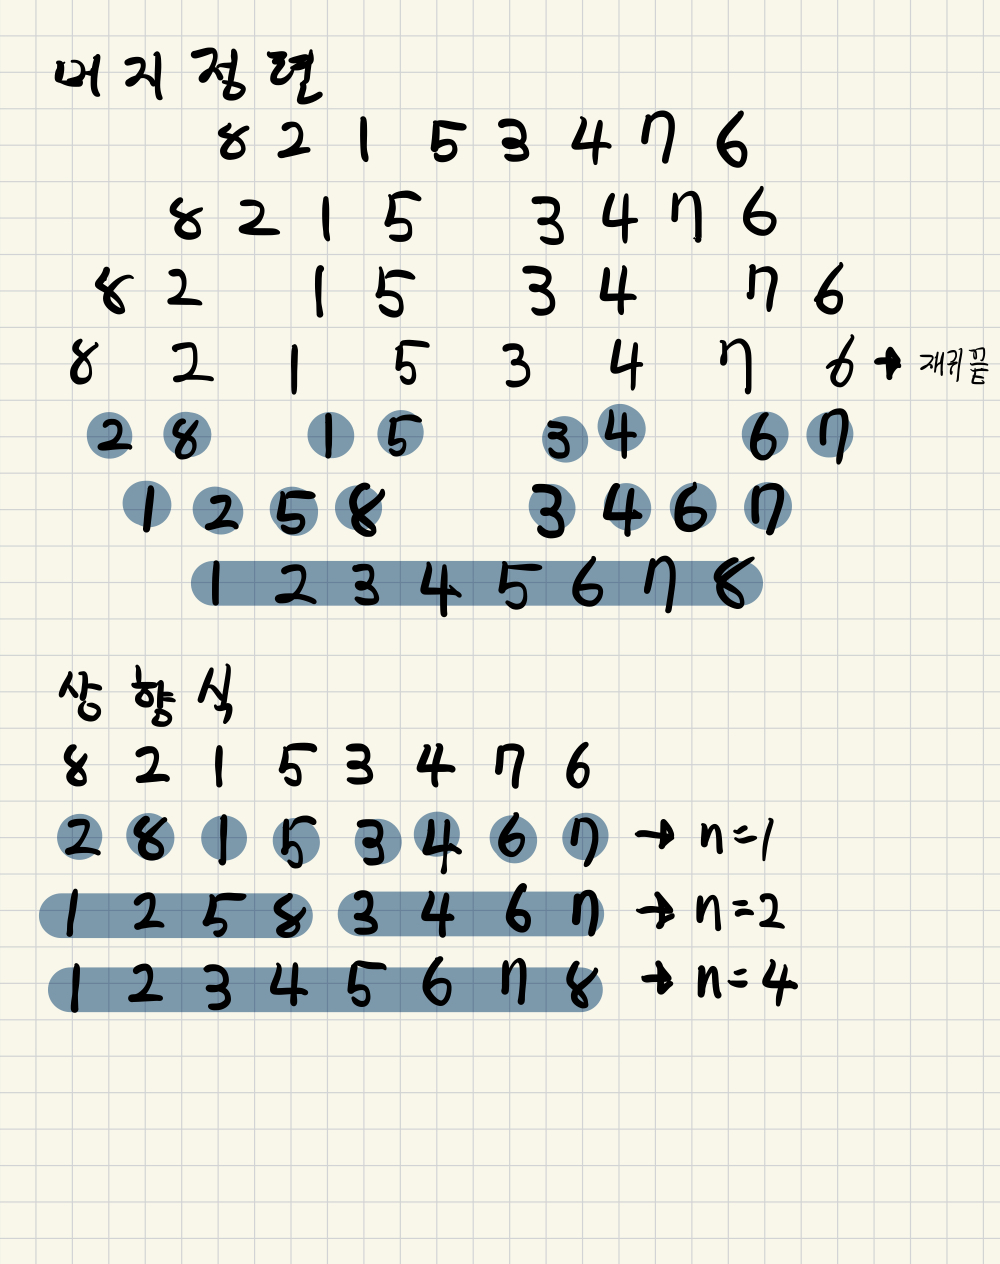 머지정렬
8 2 1 5 3 4 7 6
8 2 1 5 3 4 7 6
8 2 1 5 3 4 7 6
8 2 1 5 3 4 7 6 → 재귀끝
2 8 1 5 3 4 6 7
1 2 5 8 3 4 6 7
1 2 3 4 5 6 7 8
상향식
8 2 1 5 3 4 7 6
2 8 1 5 3 4 6 7 → n=1
1 2 5 8 3 4 6 7 → n=2
1 2 3 4 5 6 7 8 → n=4